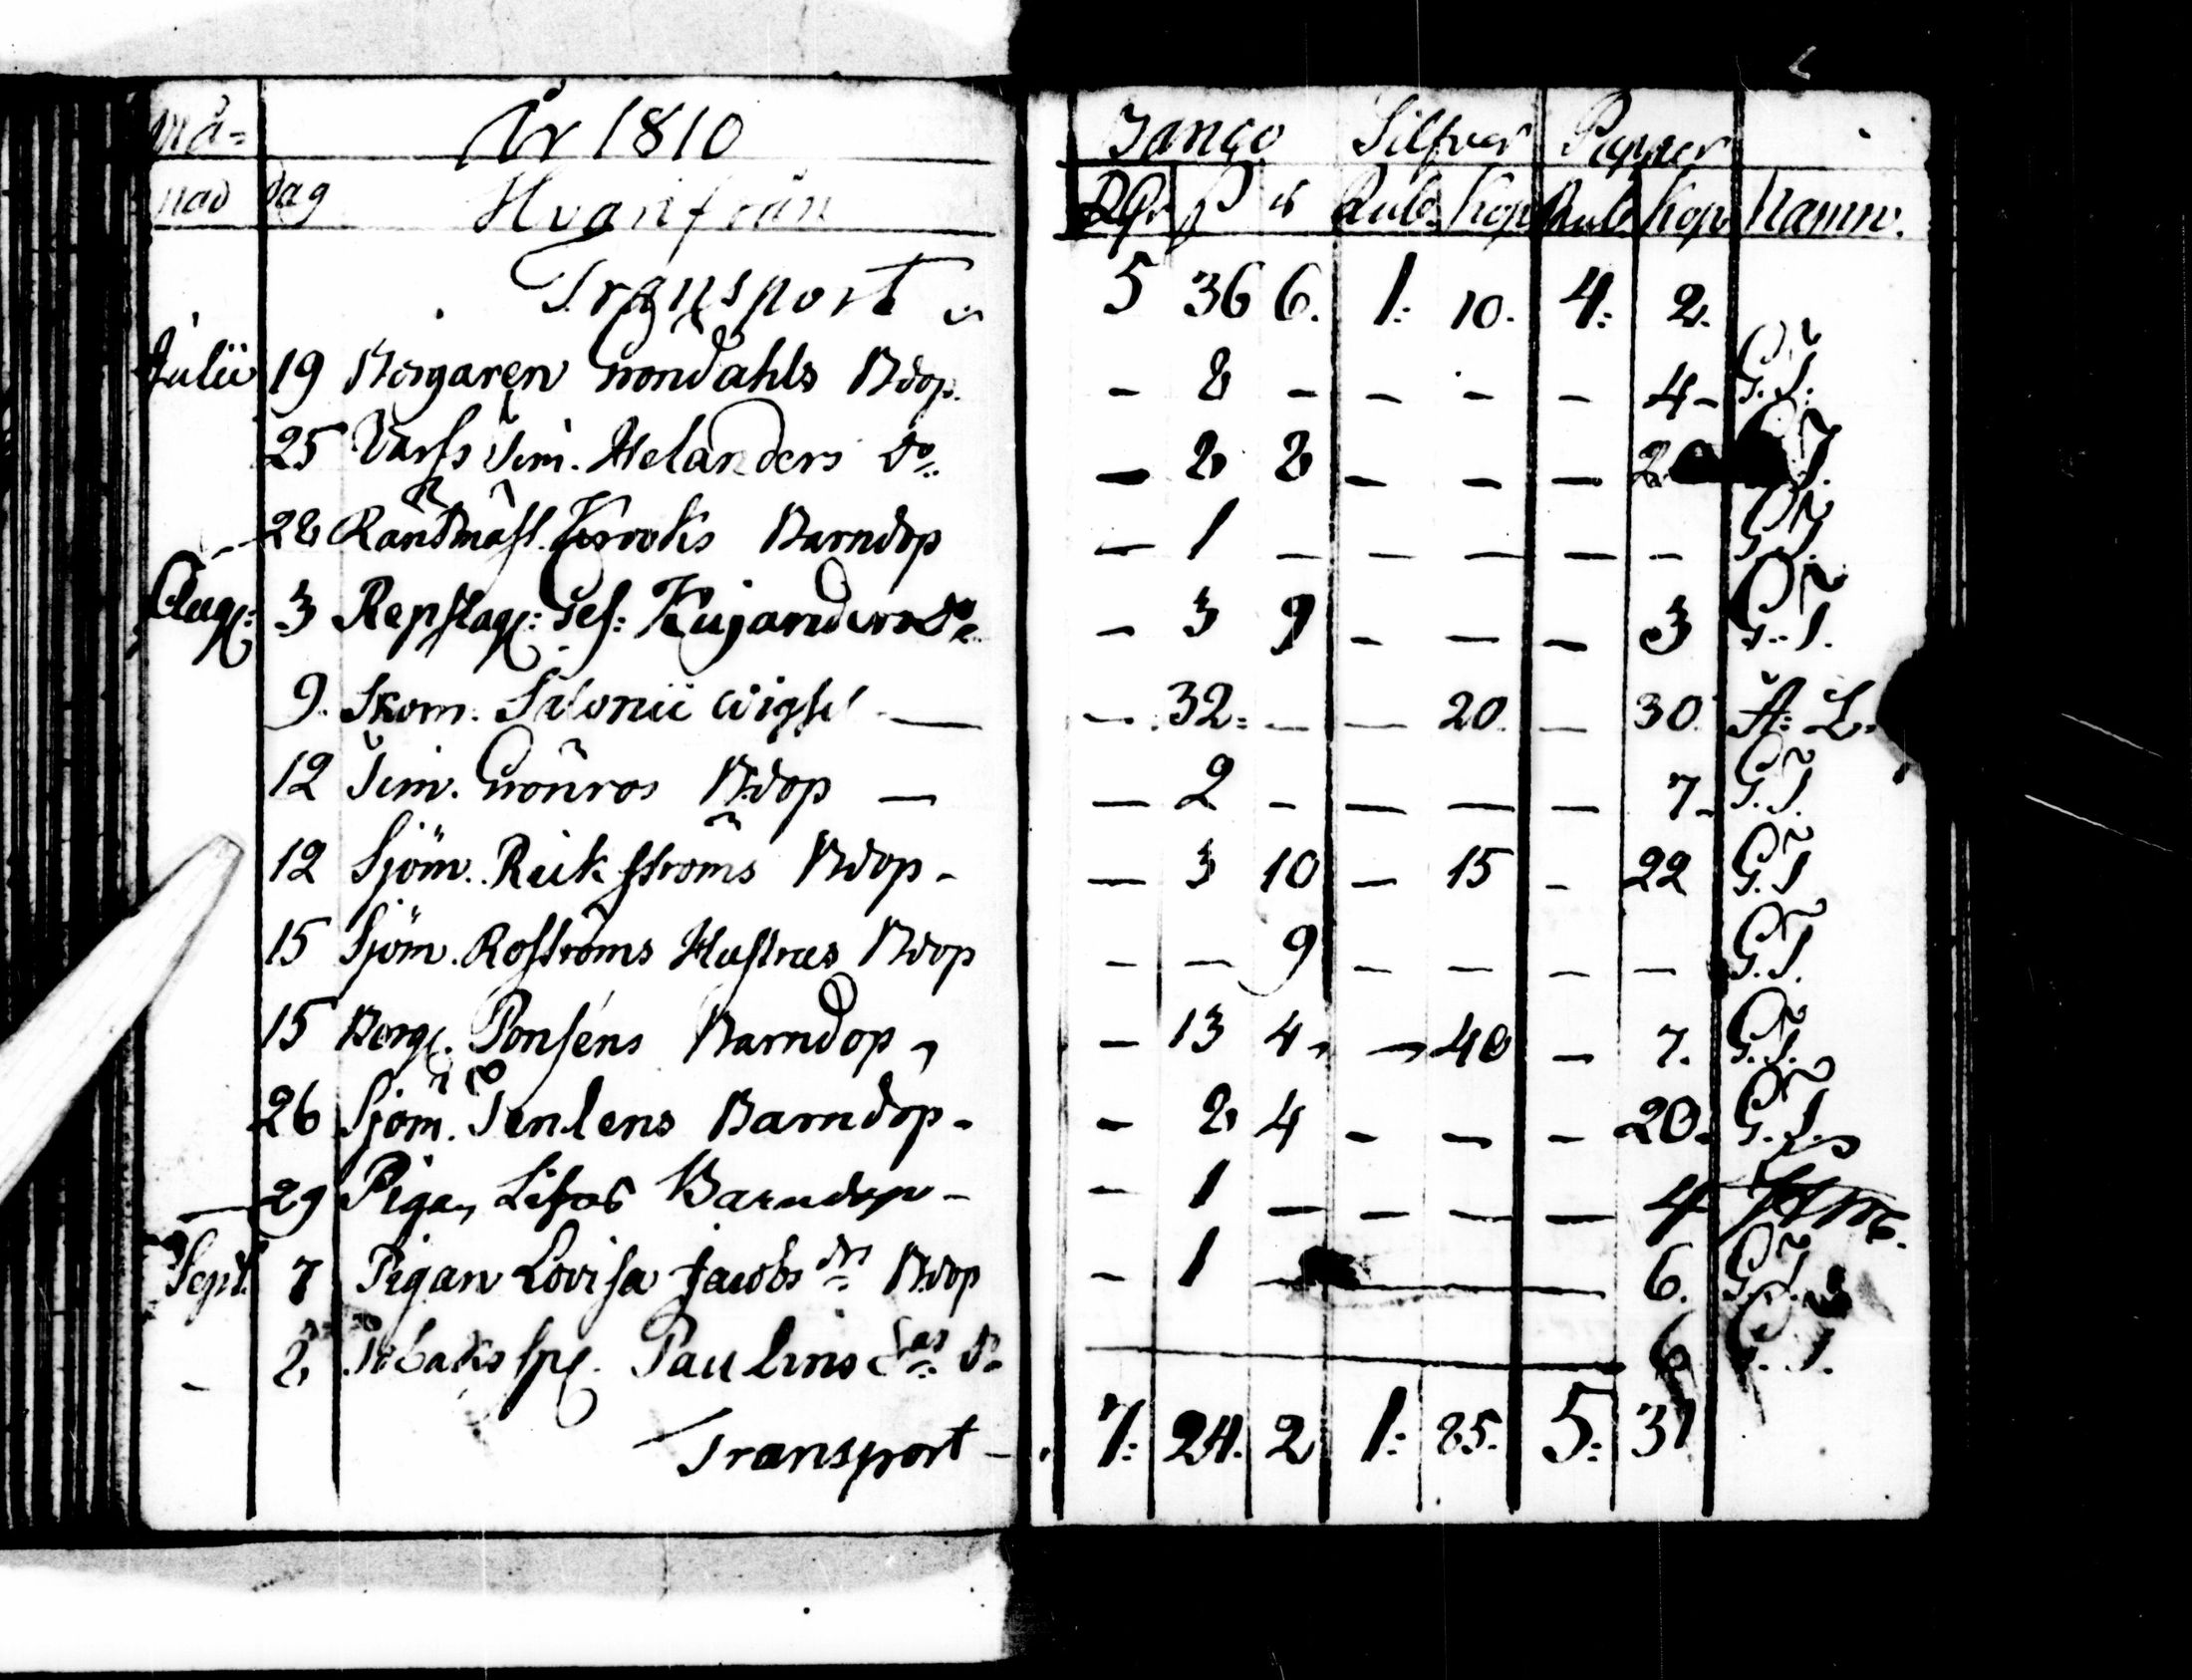 Må= År 1810 Banco Silfver Papper
nad dag Hvarifrån Rdr ß rs Rub. kop Rub kop Namn.
Transport 5 36 6. 1: 10. 4: 2.
Julii 19 Borgaren Grondahls Bdop. - 8 - - - - 4 - G.T.
25 Varfs Tim. Helanders do - 2 8 - - - 2 T.
- 28 Räntmäst. Krooks Barndop - 1 - - - - - G.T.
Aug: 3 Repslag: Ges: Kujanders do - 3 9 - - - 3 G.T.
9. Skom. Salonii wigsel - - 32= - - 20 - 30. A: L.
12 Tim. Grönroos Bdop - - 2 - - - - 7- G.T.
12 Sjöm. Rickströms Bdop - - 3 10 - 15 - 22 G.T
15 Sjöm. Roströms Hustrus Bdop - - 9 - - - - G.T.
15 Borg. Ponséns Barndop - - 13 4 - 40 - 7. G.T.
26 Sjöm. Tenlens Barndop - - 2 4 - - - 20. G.T.
- 29 Pigan Lisas Barndop - - 1 - - - - 4
Sept. 7 Pigan Lovisa Jacobs dr Bdop - 1 - 6. G.T.
- 8 Tobaks sp. Paulins do - 6 G.T.
Transport - 7: 24. 2 1: 85. 5: 37